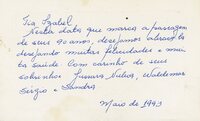 Tia Izabel
Nesta data que marca a passagem
de seus 90 anos, desejamos abraçá-la
desejando muitas felicidades e mui
ta saúde com carinho de seus
sobrinhos Jussara, Waldemar
Sérgio e Sandra
Maio de 1993